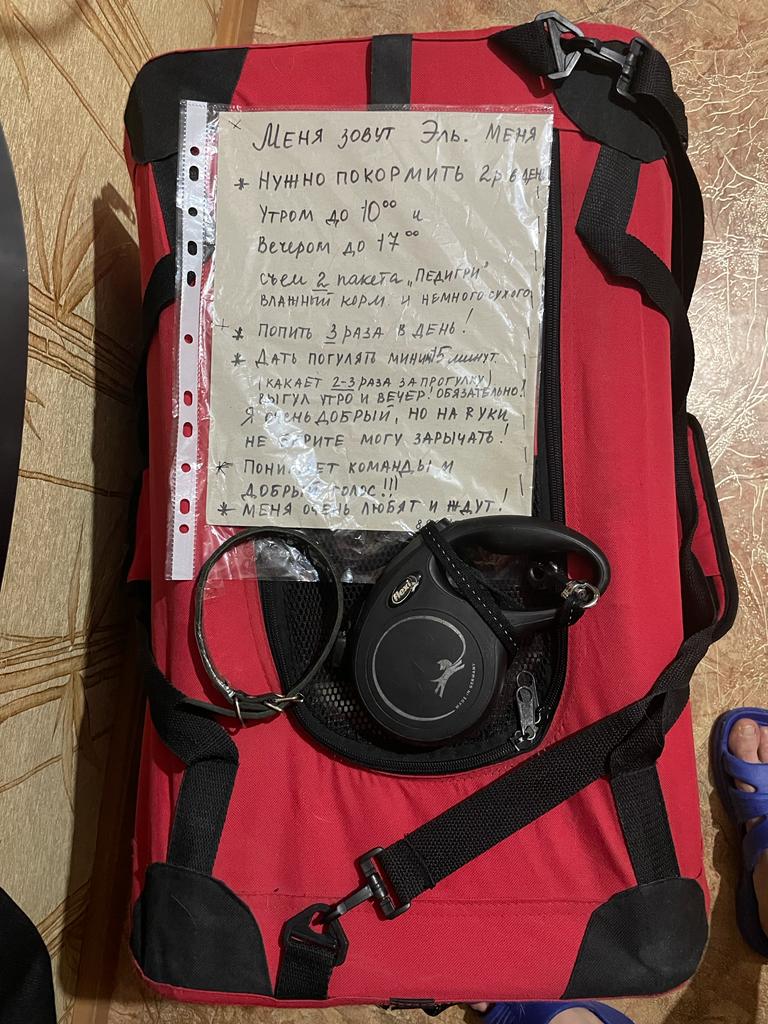 Меня зовут Эль. Меня
* Нужно покормить 2р в день
Утром до 10⁰⁰ и
Вечером до 17⁰⁰
съем 2 пакета „Педигри"
влажный корм. и немного сухого
* Попить 3 раза в день!
* Дать погулять миним 15 минут
(какает 2-3 раза за прогулку)
выгул утро и вечер! обязательно!
Я очень добрый, но на руки
не берите могу зарычать!
* Понимает команды и
добрый голос!!!
* Меня очень любят и ждут!
flexi
MADE IN GERMANY